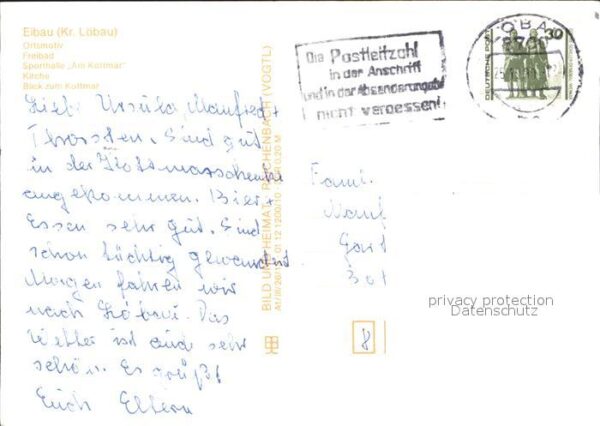 Eibau (Kr. Löbau)
Ortsmotiv
Freibad
Sporthalle „Am Kottmar“
Kirche
Blick zum Kottmar
Liebe Ursula, Manfred +
Thorsten. Sind gut
in der Kottmarschenke
angekommen. Bier +
Essen sehr gut. Sind
schon tüchtig gewandert
Morgen fahren wir
nach Löbau. Das
Wetter ist auch sehr
schön. Es grüßt
Euch Eltern
BILD UND HEIMAT REICHENBACH (VOGTL)
Die Postleitzahl
in der Anschrift
und in der Absenderangabe
nicht vergessen!
LÖBAU
8700
DEUTSCHE POST
30
Fami.
Manf
Gart
privacy protection
Datenschutz
8